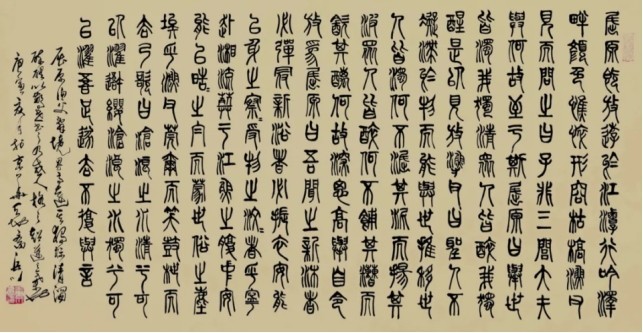 屈原既放遊於江潭行吟澤
畔顏色憔悴形容枯槁漁父
見而問之曰子非三閭大夫
與何故至於斯屈原曰舉世
皆濁我獨清眾人皆醉我獨
醒是以見放漁父曰聖人不
凝滯於物而能與世推移世
人皆濁何不淈其泥而揚其
波眾人皆醉何不餔其糟而
歠其醨何故深思高舉自令
放為屈原曰吾聞之新沐者
必彈冠新浴者必振衣安能
以身之察〻受物之汶〻者乎寧
赴湘流葬於江魚之腹中安
能以皓〻之白而蒙世俗之塵
埃乎漁父莞爾而笑鼓枻而
去乃歌曰滄浪之水清兮可
以濯吾纓滄浪之水濁兮可
以濯吾足遂去不復與言
屈原漁父